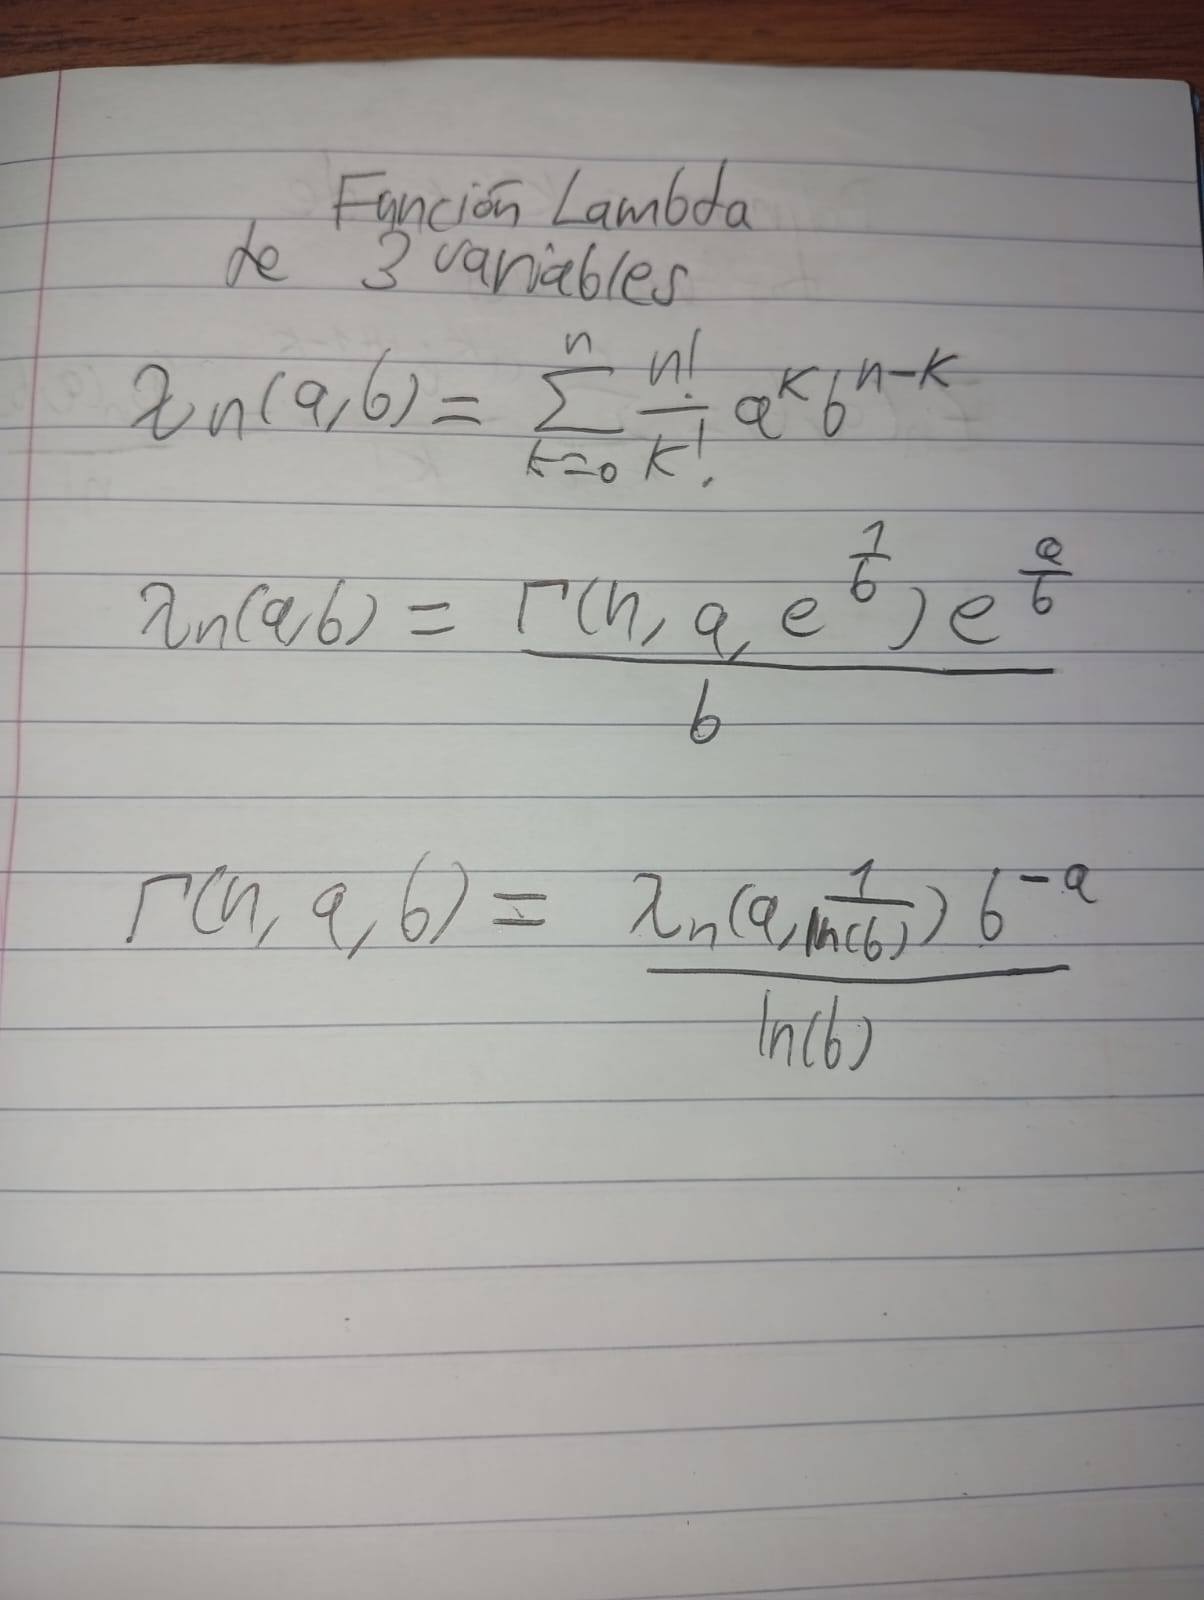 Función Lambda
de 3 variables
λn(a,b) = Σ_{k=0}^{n} n!/k! a^k b^{n-k}
λn(a,b) = Γ(n, a, e^{1/b}) e^{a/b} / b
Γ(n, a, b) = λn(a, 1/ln(b)) b^{-a} / ln(b)